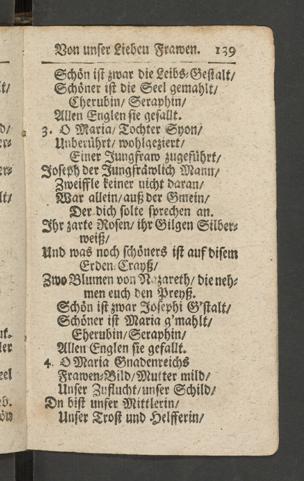 Von unser Lieben Frawen. 139
Schön ist zwar die Leibs-Gestalt/
Schöner ist die Seel gemahlt/
Cherubin/ Seraphin/
Allen Englen sie gefallt.
3. O Maria/ Tochter Syon/
Unberührt/ wohlgeziert/
Einer Jungfraw zugeführt/
Joseph der Jungfräwlich Mann/
Zweiffle keiner nicht daran/
War allein/ auß der Gmein/
Der dich solte sprechen an.
Ihr zarte Rosen/ ihr Gilgen Silber-
weiß/
Und was noch schöners ist auf disem
Erden-Crayß/
Zwo Blumen von Nazareth/ die neh-
men euch den Preyß.
Schön ist zwar Josephi G'stalt/
Schöner ist Maria g'mahlt/
Cherubin/ Seraphin/
Allen Englen sie gefallt.
4. O Maria Gnadenreichs
Frawen-Bild/ Mutter mild/
Unser Zuflucht/ unser Schild/
Du bist unser Mittlerin/
Unser Trost und Helfferin/